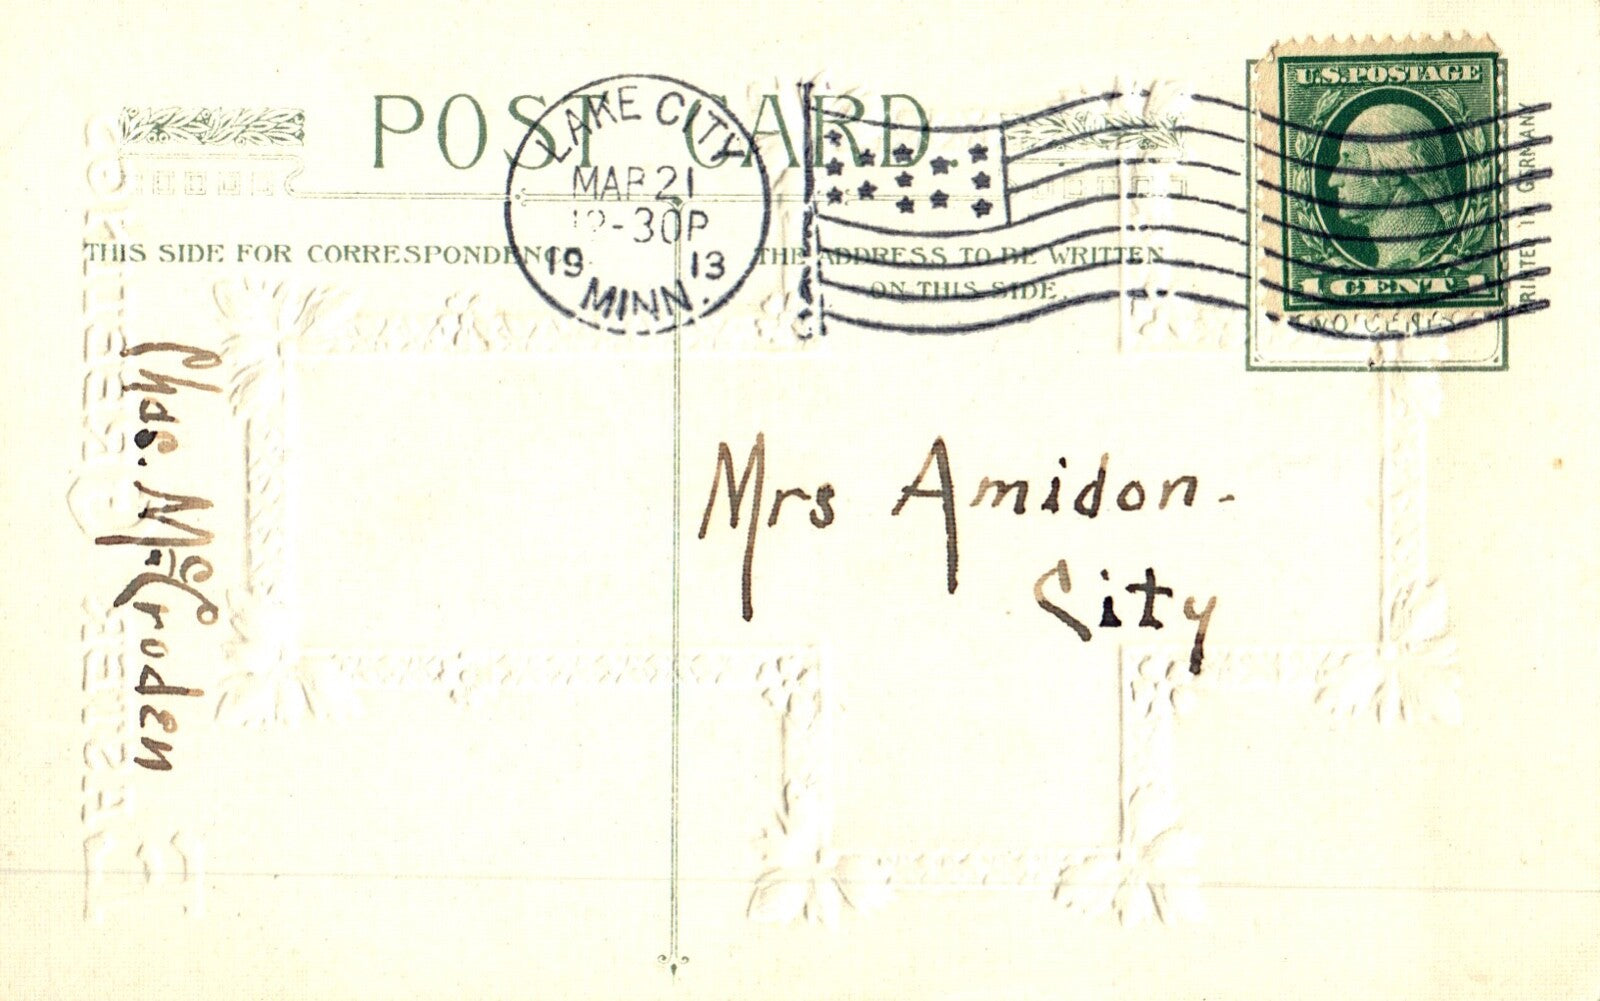 POST CARD
LAKE CITY
MAR 21
12-30P
1913
MINN.
U.S. POSTAGE
1 CENT 1
TWO CENTS
PRINTED IN GERMANY
THIS SIDE FOR CORRESPONDENCE.
THE ADDRESS TO BE WRITTEN
ON THIS SIDE.
Mrs Amidon-
City
Chas. Mc-Croden